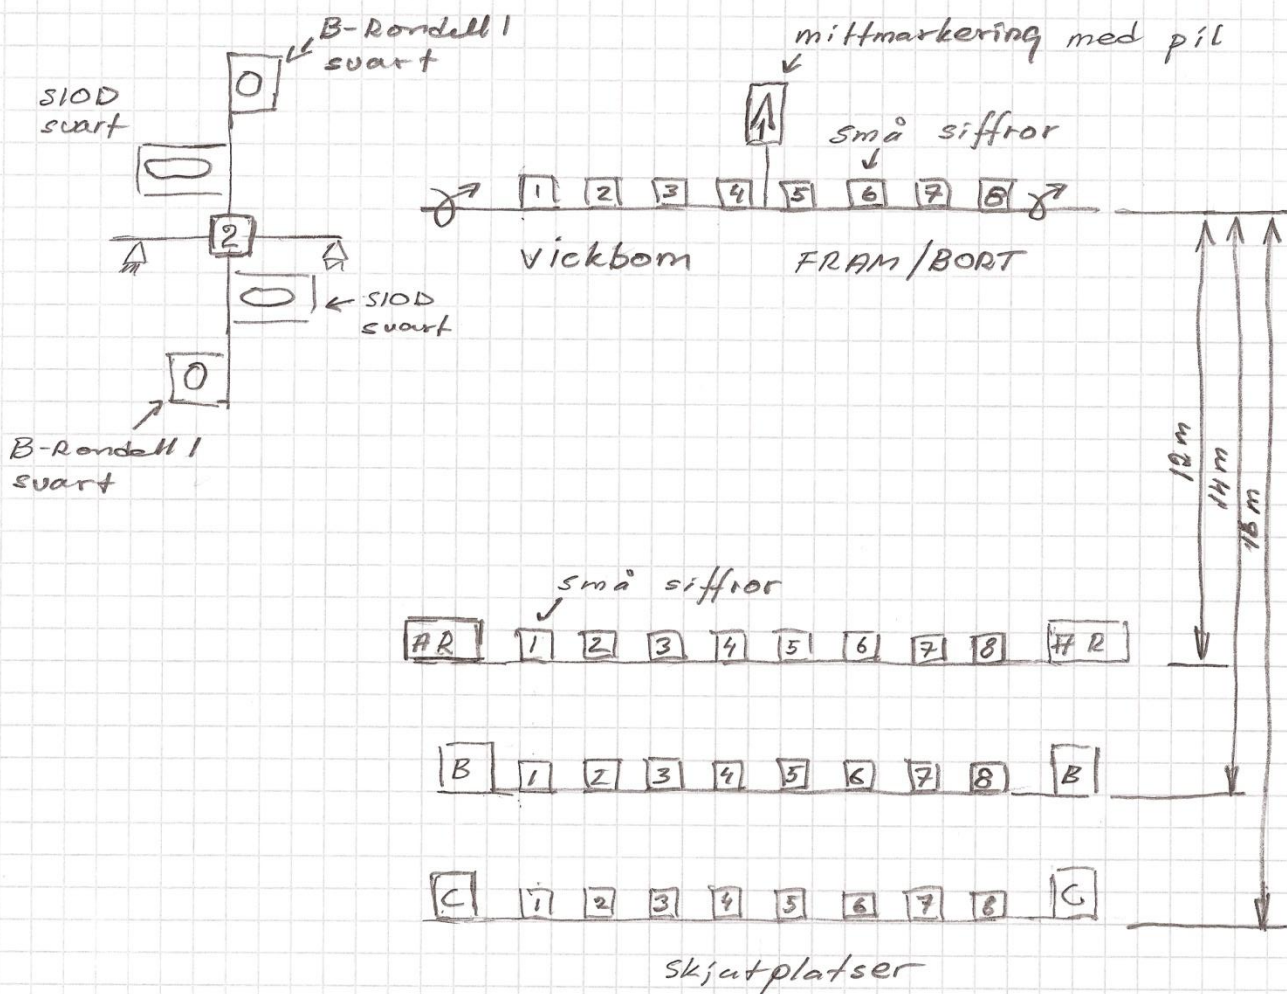 B-Rondell 1
svart
S10D
svart
0
2
S10D
svart
0
B-Rondell 1
svart
mittmarkering med pil
små siffror
1 2 3 4 5 6 7 8
Vickbom FRAM/BORT
12 m
14 m
små siffror
AR 1 2 3 4 5 6 7 8 AR
B 1 2 3 4 5 6 7 8 B
C 1 2 3 4 5 6 7 8 C
skjutplatser